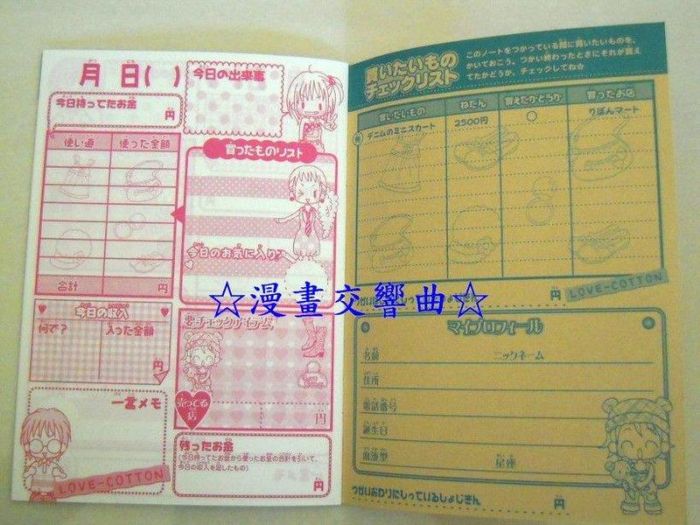 月 日( )
今日の出来事
今日持ってたお金
円
使い道 使った金額
合計 円
買ったものリスト
今日のお気に入り♡
今日の収入
何で? 入った金額
円
要チェックアイテム
売ってる店
円
一言メモ
残ったお金
(今日持ってたお金から使ったお金の合計を引いて、
今日の収入を足したもの)
円
LOVE-COTTON
買いたいもの
チェックリスト
このノートをつかっている間に買いたいものを、
かいておこう。つかい終わったときにそれが買え
てたかどうか、チェックしてね☆
買いたいもの ねだん 買えたかどうか 買ったお店
デニムのミニスカート 2500円 ○ りぼんマート
LOVE-COTTON
☆漫畫交響曲☆
マイプロフィール
名前 ニックネーム
住所
電話番号
誕生日
血液型 星座
つかいおわりたいしっているしょじきん 円